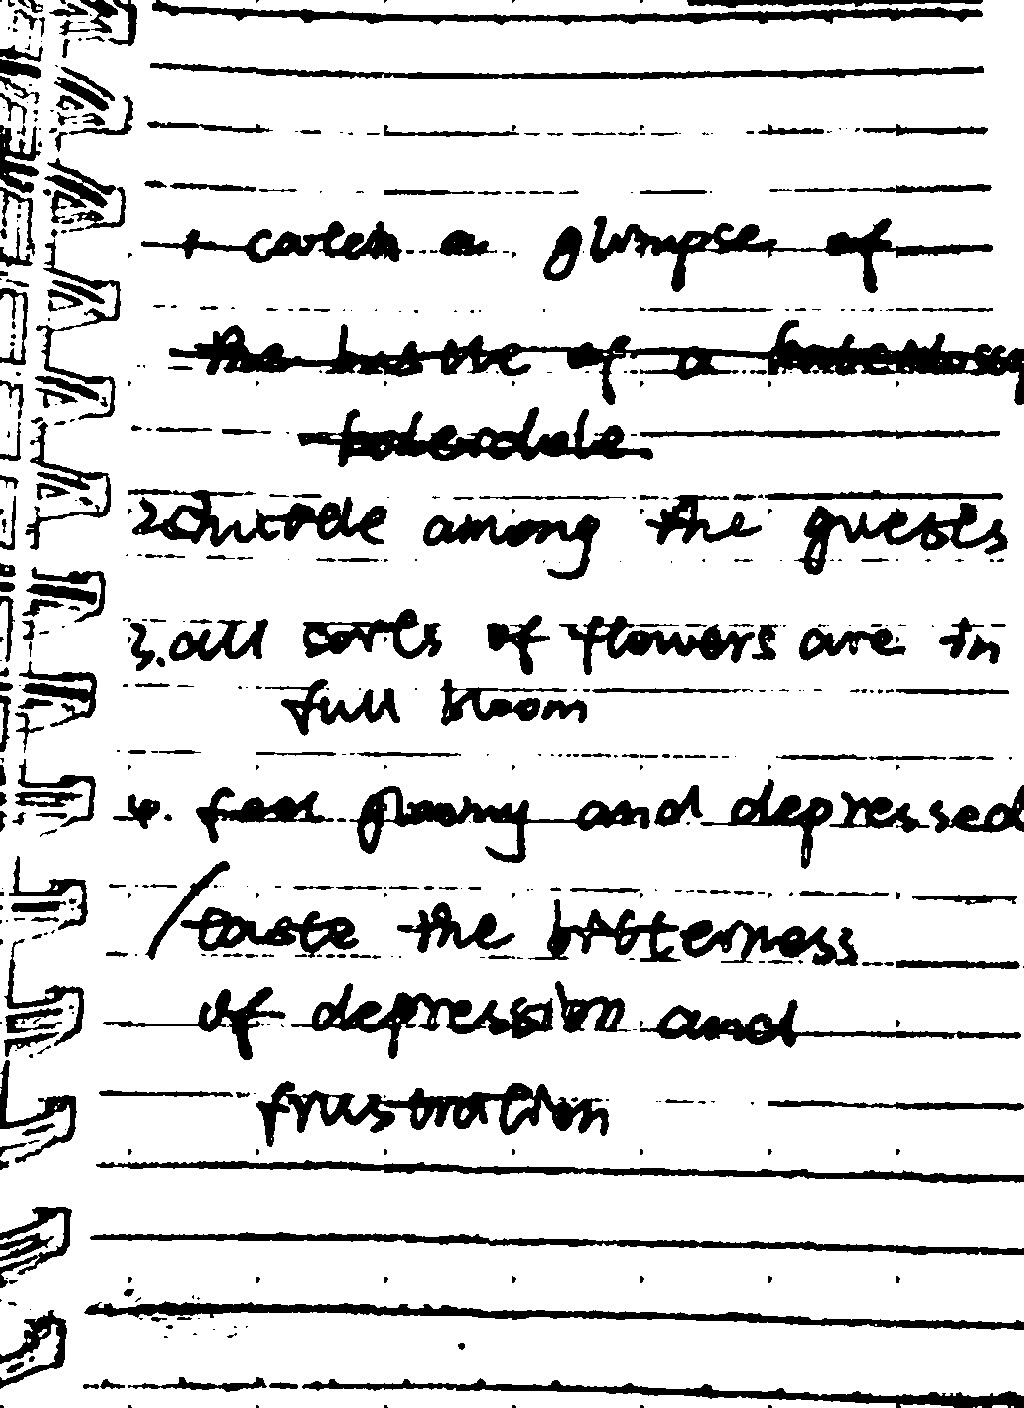 1 catch a glimpse of
the bustle of a
2 shuttle among the guests
3. all sorts of flowers are in
full bloom
4. feel gloomy and depressed
/ taste the bitterness
of depression and
frustration